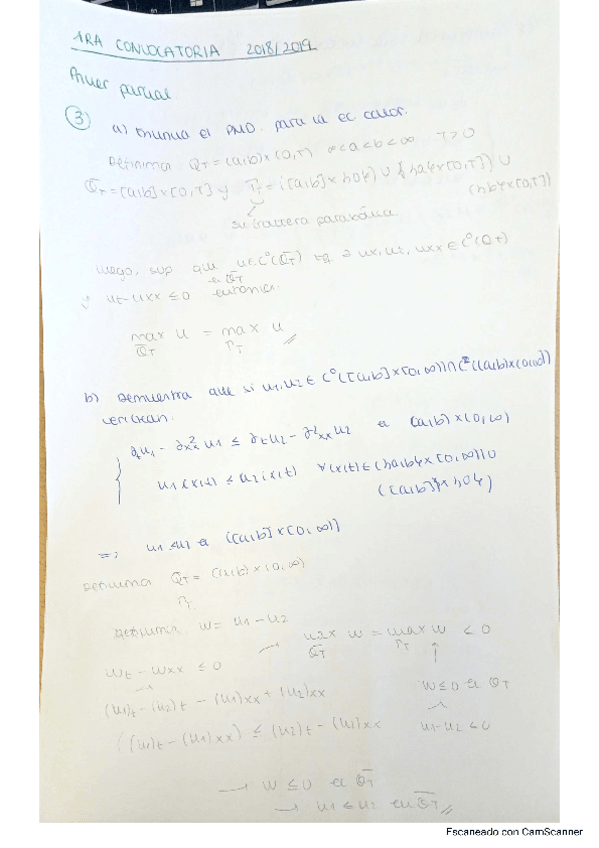 1RA CONVOCATORIA 2018/2019
Primer parcial.
③ a) Enuncia el PMD. para la ec calor.
Definimos Q_T = (a,b)×(0,T) ∞<a<b<∞ T>0
Q̄_T = [a,b]×[0,T] y Γ_T = ([a,b]×{0}) ∪ ({a}×[0,T]) ∪
({b}×[0,T])
su frontera parabólica.
Luego, sup que u∈C⁰(Q̄_T) tq ∃ ux, ut, uxx ∈ C⁰(Q_T)
y ut-uxx ≤ 0 en Q_T entonces.
max u = max u
Q̄_T Γ_T
b) Demuestra que si u1,u2 ∈ C⁰([a,b]×[0,∞))∩C²((a,b)×(0,∞))
verifican.
∂tu1 - ∂²xx u1 ≤ ∂tu2 - ∂²xx u2 en (a,b)×(0,∞)
u1(x,t) ≤ u2(x,t) ∀(x,t)∈({a,b}×[0,∞))∪
([a,b]×{0})
=> u1≤u2 en ([a,b]×[0,∞))
Definimos Q_T = (a,b)×(0,∞)
Γ_T
Definimos w = u1-u2
max w = max w < 0
Q̄_T Γ_T
wt - wxx ≤ 0
(u1)t-(u2)t - (u1)xx + (u2)xx
w≤0 en Q_T
((u1)t-(u1)xx) ≤ (u2)t-(u2)xx
u1-u2 ≤0
→ w≤0 en Q̄_T
→ u1≤u2 en Q̄_T
Escaneado con CamScanner